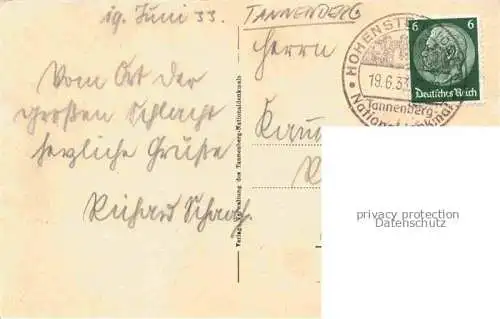 19. Juni 33.
TANNENBERG
Vom Ort der
großen Schlacht
herzliche Grüße
Richard Schach.
Herrn
Verlag: Verwaltung des Tannenberg-Nationaldenkmals
HOHENST
19.6.33
Tannenberg-
National
6 6
Deutsches Reich
privacy protection
Datenschutz